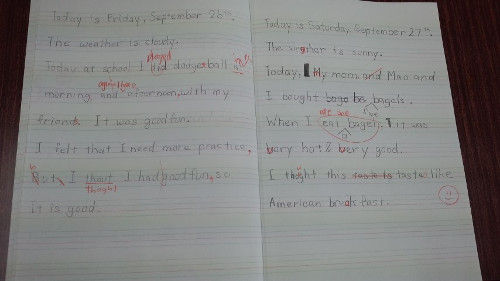 Today is Friday, September 26th.
The weather is cloudy.
played
Today at school I did dodgeball in the
afternoon
morning and afternoon, with my
friends. It was good fun.
I felt that I need more practice,
b
But, I thout I had good fun, so
thought
it is good.
Today is Saturday, September 27th.
The weather is sunny.
Today, My mom and Mao and
I bought bagels.
ate we
When I eat bagels, It was
a
very hot & very good.
I thought this taste is taste like
American breakfast.